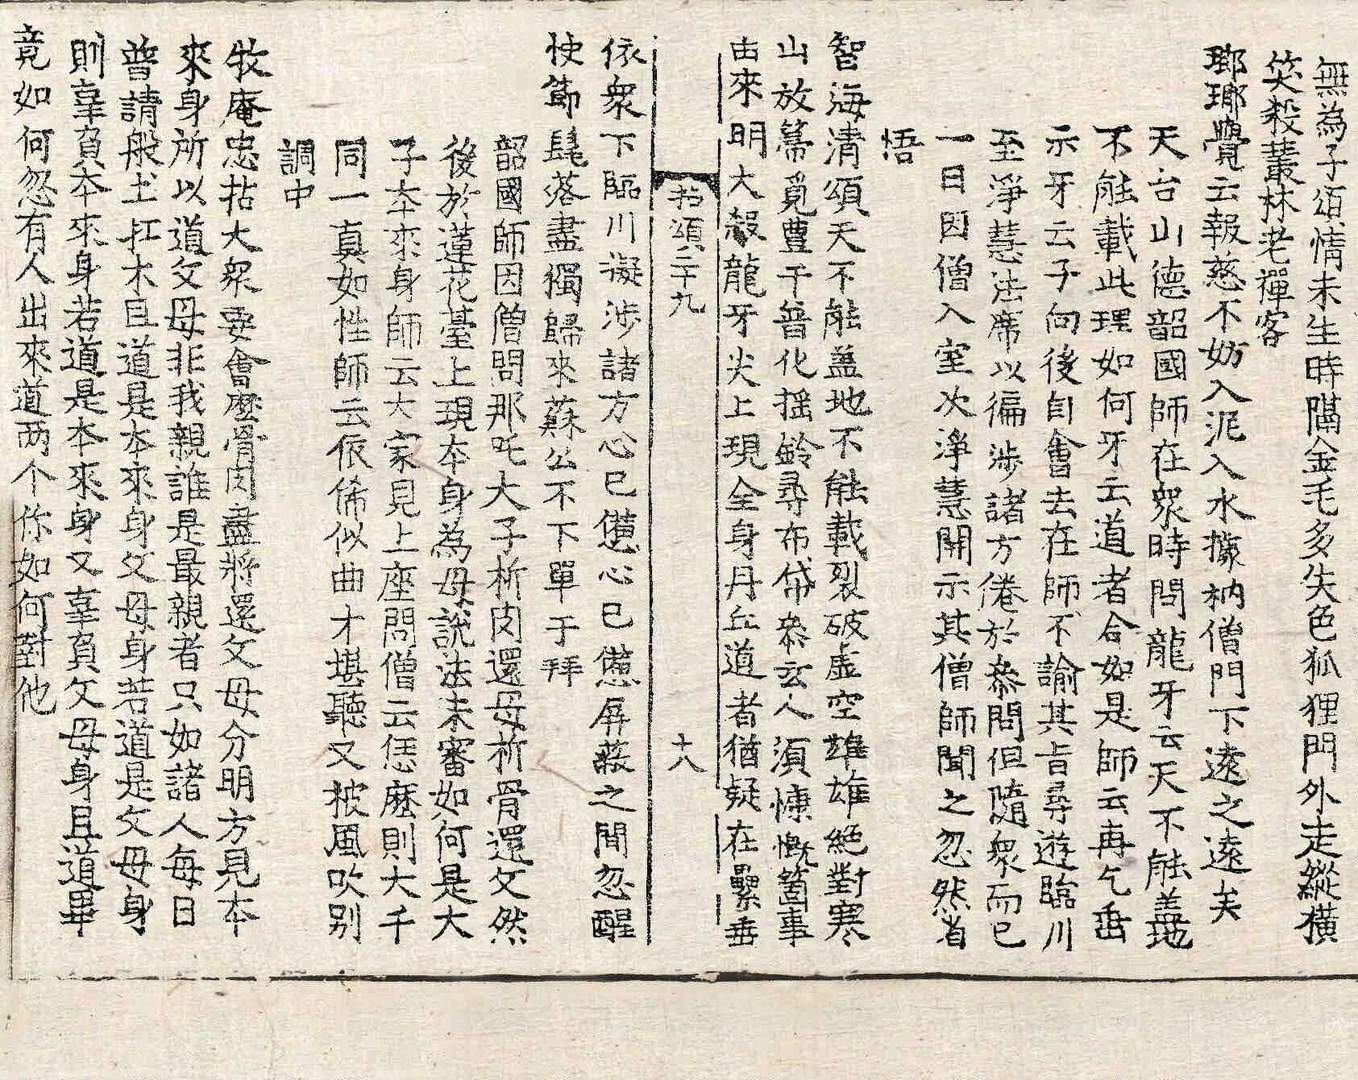 無為子頌情未生時隔金毛多失色狐狸門外走縱橫
笑殺叢林老禪客
瑯瑘覺云報慈不妨入泥入水據衲僧門下遠之遠矣
天台山德韶國師在衆時問龍牙云天不能盖地
不能載此理如何牙云道者合如是師云再乞垂
示牙云子向後自會去在師不諭其旨尋遊臨川
至淨慧法席以徧涉諸方倦於叅問但隨衆而已
一日因僧入室次淨慧開示其僧師聞之忽然省
悟
智海清頌天不能盖地不能載裂破虛空雄雄絕對寒
山放箒覓豊干普化揺鈴尋布袋叅玄人須慷慨箇事
由來明大殺龍牙尖上現全身丹丘道者猶疑在纍垂
拈頌二十九 十八
依衆下臨川擬涉諸方心已憊心已憊屏蔽之間忽醒
快節髦落盡獨歸來蘇公不下單于拜
韶國師因僧問那吒大子析肉還母析骨還父然
後於蓮花臺上現本身為母說法未審如何是大
子本來身師云大家見上座問僧云恁麽則大千
同一真如性師云依俙似曲才堪聽又被風吹别
調中
牧庵忠拈大衆要會麽骨肉盡將還父母分明方見本
來身所以道父母非我親誰是最親者只如諸人每日
普請般土扛木且道是本來身父母身若道是父母身
則辜負本來身若道是本來身又辜負父母身且道畢
竟如何忽有人出來道两个你如何對他